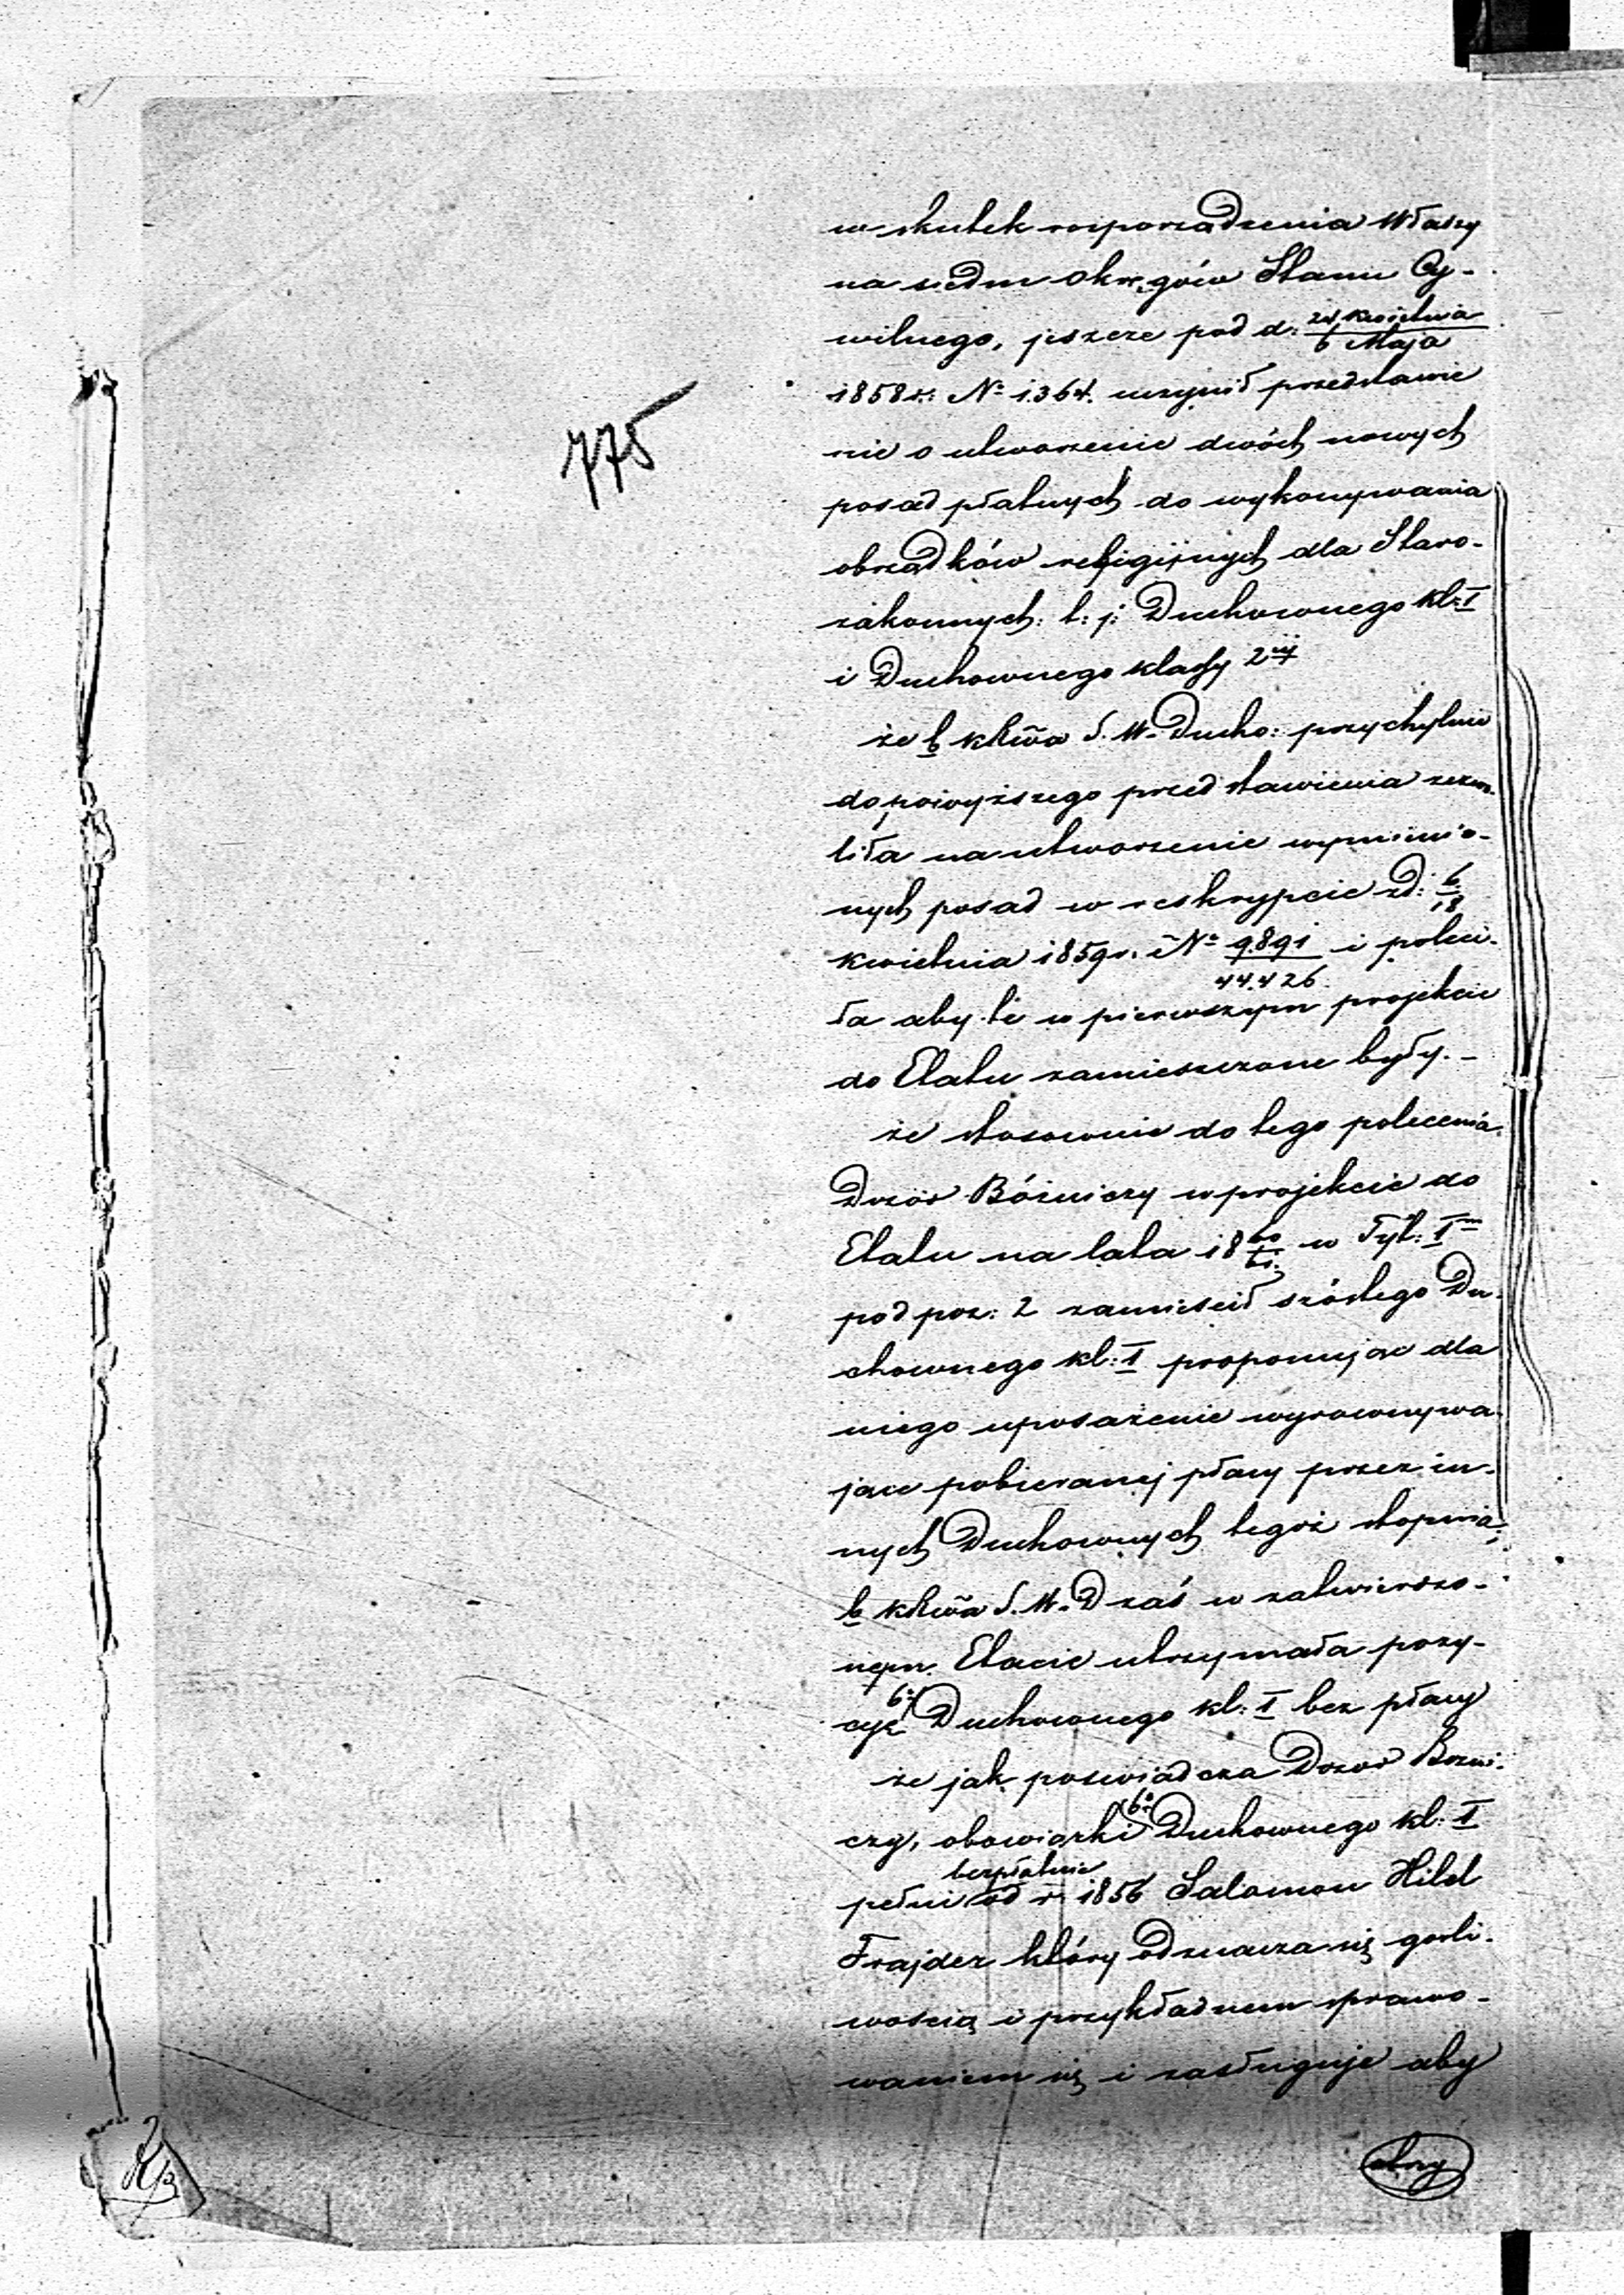 775
w skutek rozporządzenia Władzy
na siedm Okręgów Stanu Cy-
wilnego, jeszcze pod d: 24 Kwietnia / 6 Maja
1858 r: Nº 1.364. uczynił przedstawie
nie o utworzenie dwóch nowych
posad płatnych do wykonywania
obrządków religijnych dla Staro-
zakonnych: t: j: Duchownego Kl: I
i Duchownego klassy 2ej
że b KRwa S. W. Ducho: przychylnie
do powyższego przedstawienia zezwo-
liła na utworzenie wymienio-
nych posad w reskrypcie z d: 6/18
Kwietnia 1859 r. Nº 9.891/44.426 i poleci-
ła aby te w pierwszym projekcie
do Etatu zamieszczone były. -
że stosownie do tego polecenia
Dozór Bóżniczy w projekcie do
Etatu na lata 18 60/61. w Tyt: I m
pod poz: 2 zamieścił szóstego Du-
chownego kl: I proponując dla
niego uposażenie wyrownywa-
jące pobieranej płacy przez in-
nych Duchownych tegoż stopnia;
b KRwa S. W. D zaś w zatwierdzo-
nym Etacie utrzymała pozy-
cyę 6º Duchownego kl: I bez płacy
że jak poswiadcza Dozor Bozni-
czy, obowiązki 6º Duchownego kl: I
pełni bezpłatnie od r. 1856 Salomon Hilel
Frajder który odznacza się gorli-
wością i przykładnem sprawo-
waniem się i zasługuje aby
otrzy